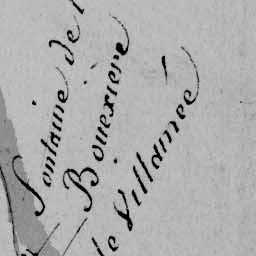 fontaine de l
Bouexiere
de Villamée